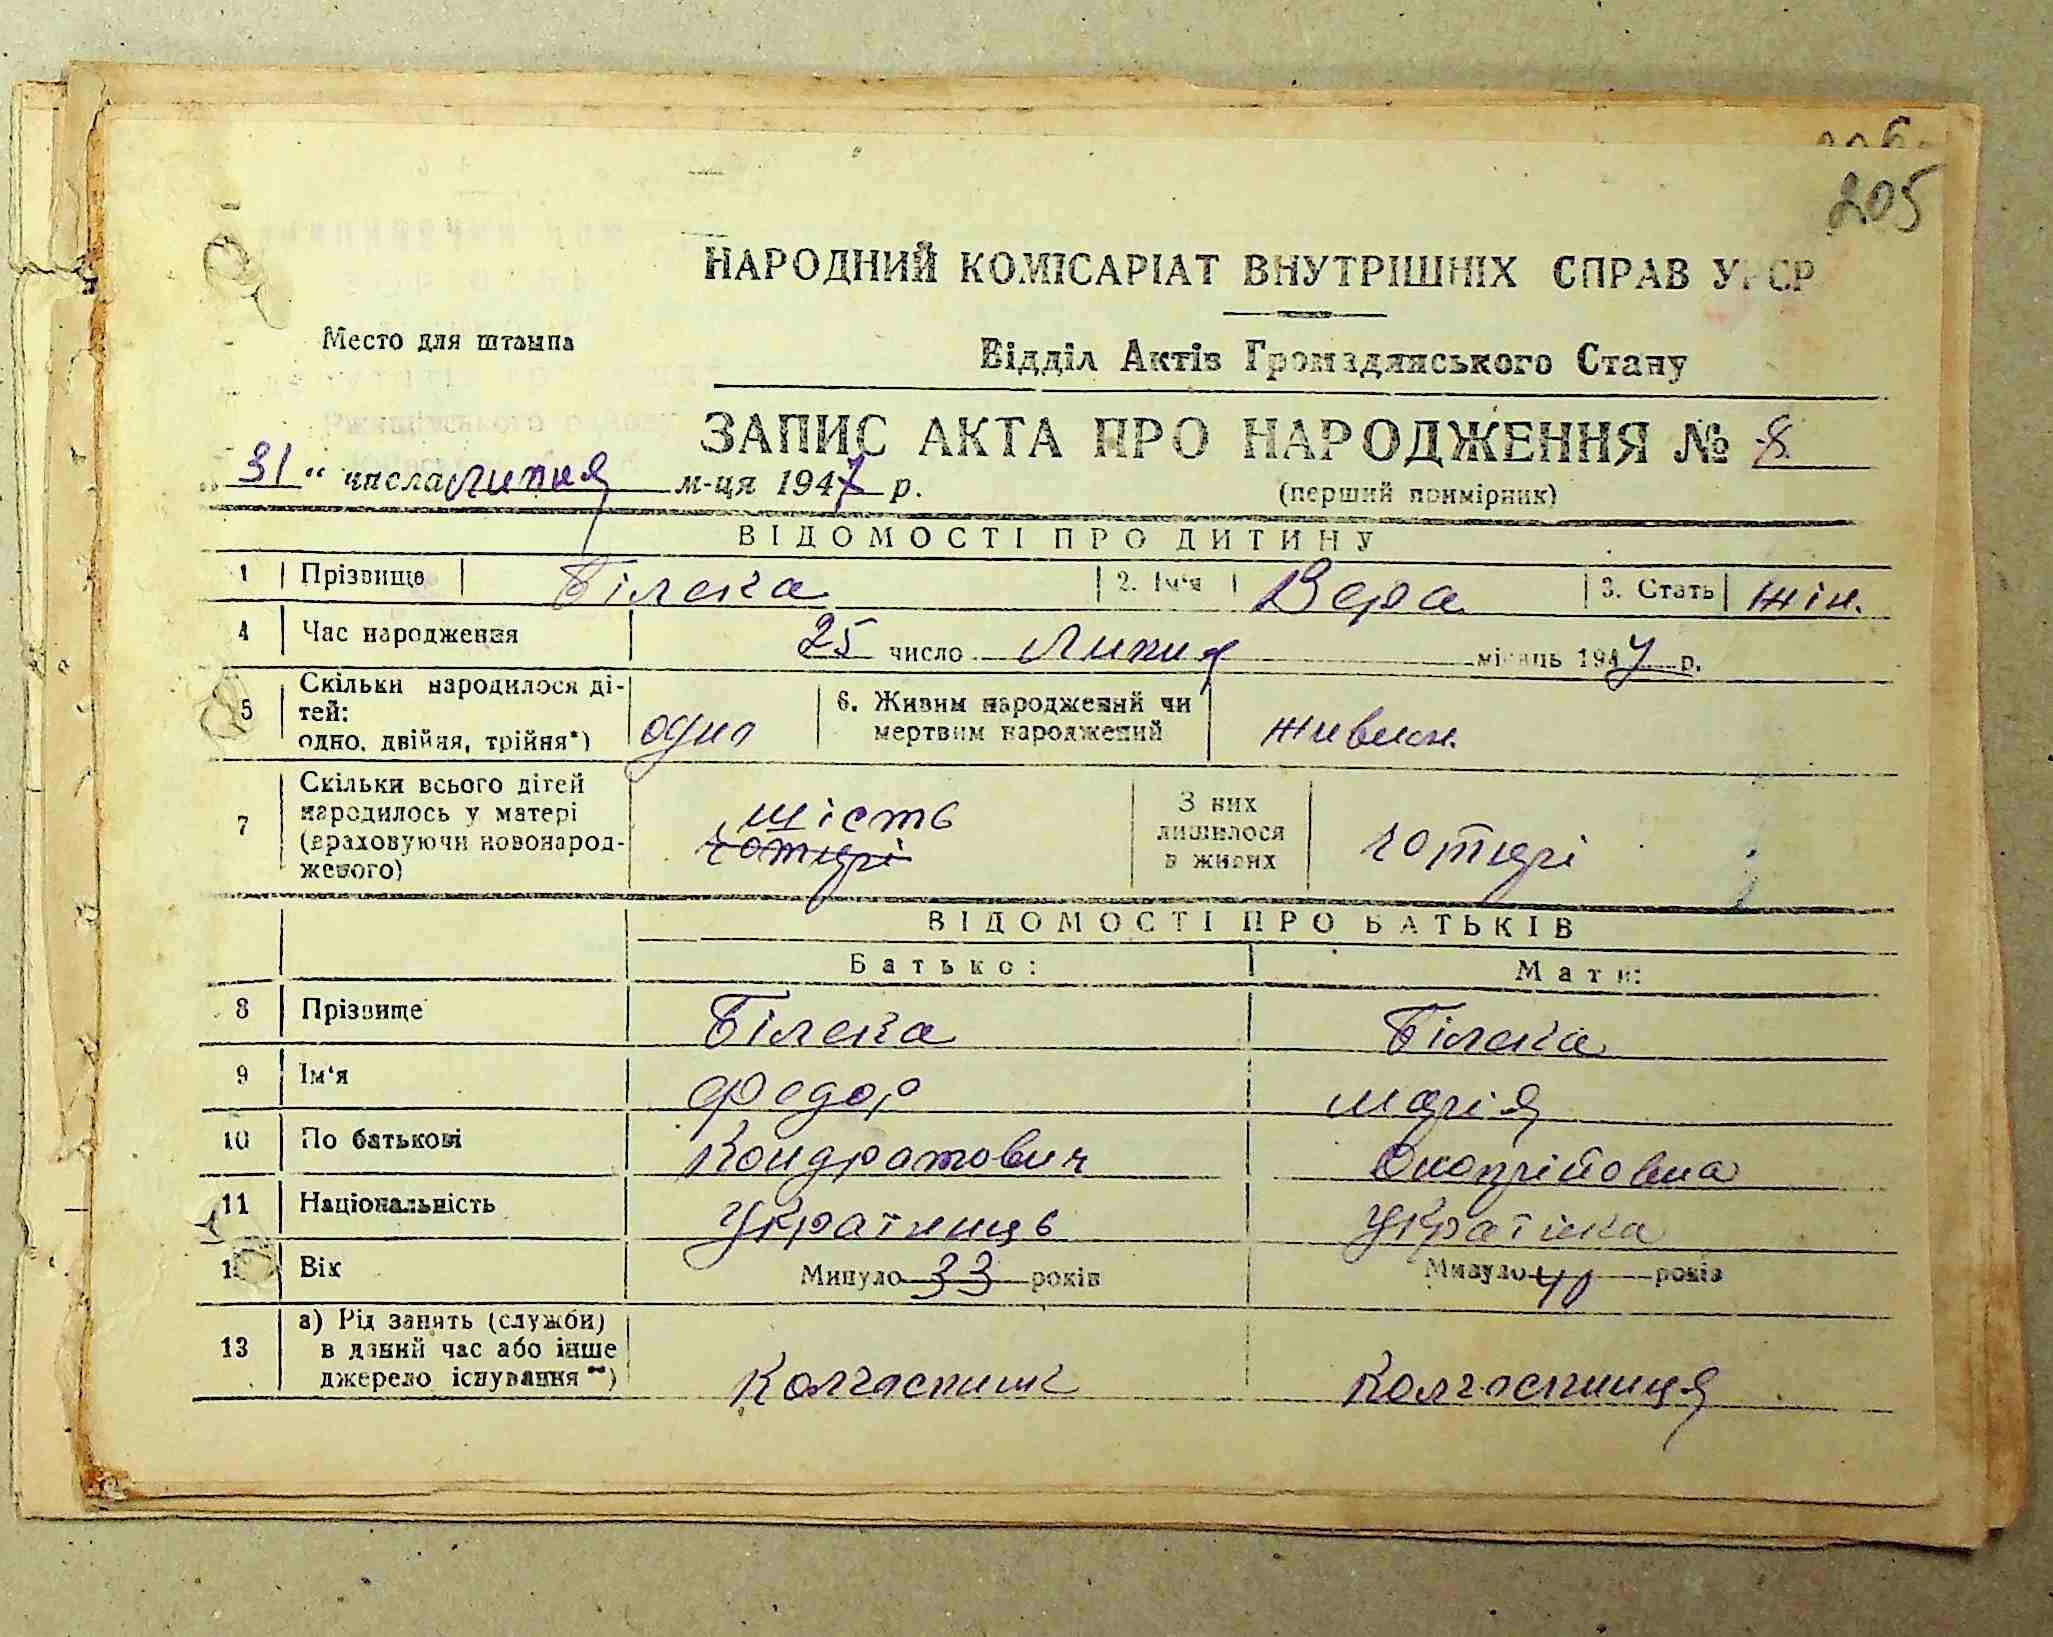 205
НАРОДНИЙ КОМІСАРІАТ ВНУТРІШНІХ СПРАВ УРСР
Место для штампа
Відділ Актів Громадянського Стану
ЗАПИС АКТА ПРО НАРОДЖЕННЯ № 8
„31“ числа липня м-ця 1947 р.
(перший примірник)
ВІДОМОСТІ ПРО ДИТИНУ
1 Прізвище Білека 2. Ім'я Вера 3. Стать жін.
4 Час народження 25 число Липня місяць 1947 р.
5 Скільки народилося ді-
тей:
одно, двійня, трійня*) одно 6. Живим народжений чи
мертвим народжений живим.
7 Скільки всього дітей
народилось у матері
(враховуючи новонарод-
женого) шість
чотирі
З них
лишилося
в живих чотирі
ВІДОМОСТІ ПРО БАТЬКІВ
Батько: Мати:
8 Прізвище Білека Білека
9 Ім'я Федор Марія
10 По батькові Кондратович Онопрійовна
11 Національність Українць Українка
Вік Минуло 33 років Минуло 40 років
13 а) Рід занять (служби)
в даний час або інше
джерело існування**) Колгоспник Колгоспниця